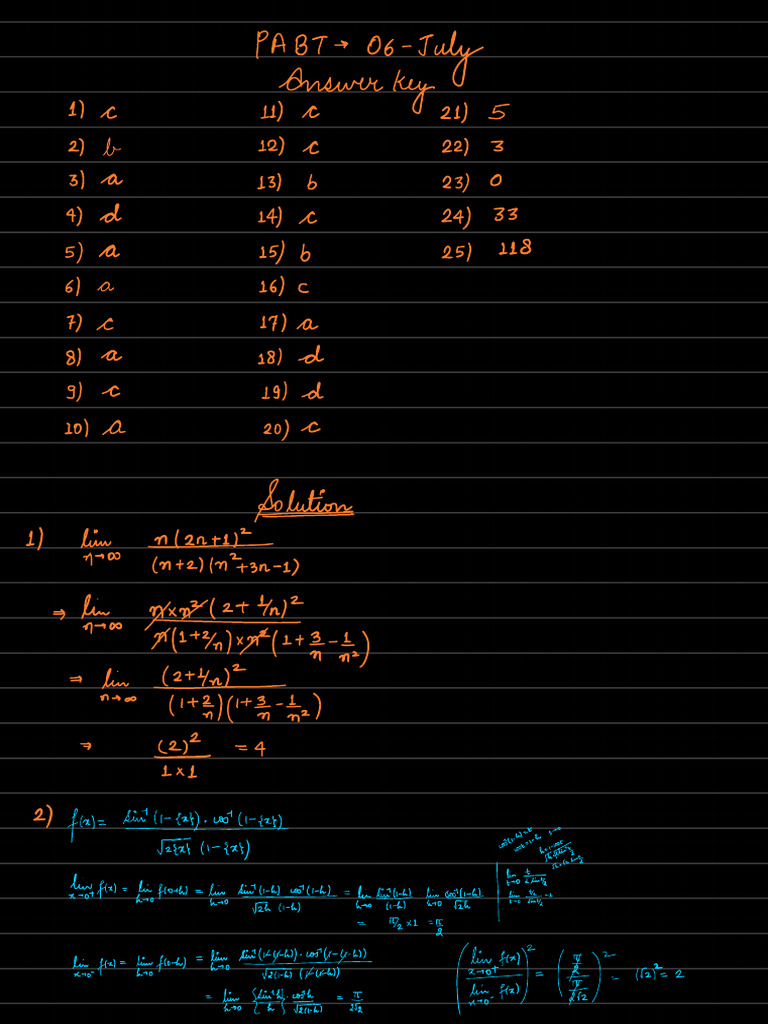 PABT → 06-July
Answer Key
1) c 11) c 21) 5
2) b 12) c 22) 3
3) a 13) b 23) 0
4) d 14) c 24) 33
5) a 15) b 25) 118
6) a 16) c
7) c 17) a
8) a 18) d
9) c 19) d
10) a 20) c
Solution
1) lim n→∞ n(2n+1)² / (n+2)(n²+3n-1)
⇒ lim n→∞ n×n²(2+1/n)² / n(1+2/n)×n²(1+3/n-1/n²)
⇒ lim n→∞ (2+1/n)² / (1+2/n)(1+3/n-1/n²)
⇒ (2)² / 1×1 = 4
2) f(x) = sin⁻¹(1-{x}).cos⁻¹(1-{x}) / √2{x} (1-{x})
lim x→0⁺ f(x) = lim h→0 f(0+h) = lim h→0 sin⁻¹(1-h) cos⁻¹(1-h) / √2h (1-h) = lim h→0 sin⁻¹(1-h) / (1-h) lim h→0 cos⁻¹(1-h) / √2h
= π/2 × 1 = π/2
lim x→0⁻ f(x) = lim h→0 f(0-h) = lim h→0 sin⁻¹(1-(1-h)).cos⁻¹(1-(1-h)) / √2(1-h) (1-(1-h))
= lim h→0 [sin⁻¹h / h] . cos⁻¹h / √2(1-h) = π / 2√2
(lim x→0⁺ f(x) / lim x→0⁻ f(x))² = (π/2 / π/2√2)² = (√2)² = 2